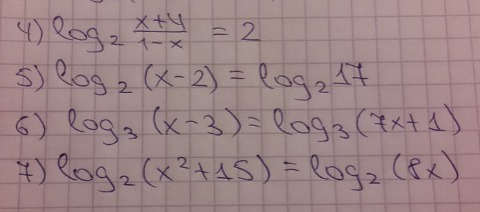 4) log₂ (x+4)/(1-x) = 2
5) log₂ (x-2) = log₂17
6) log₃ (x-3) = log₃ (7x+1)
7) log₂ (x²+15) = log₂ (8x)